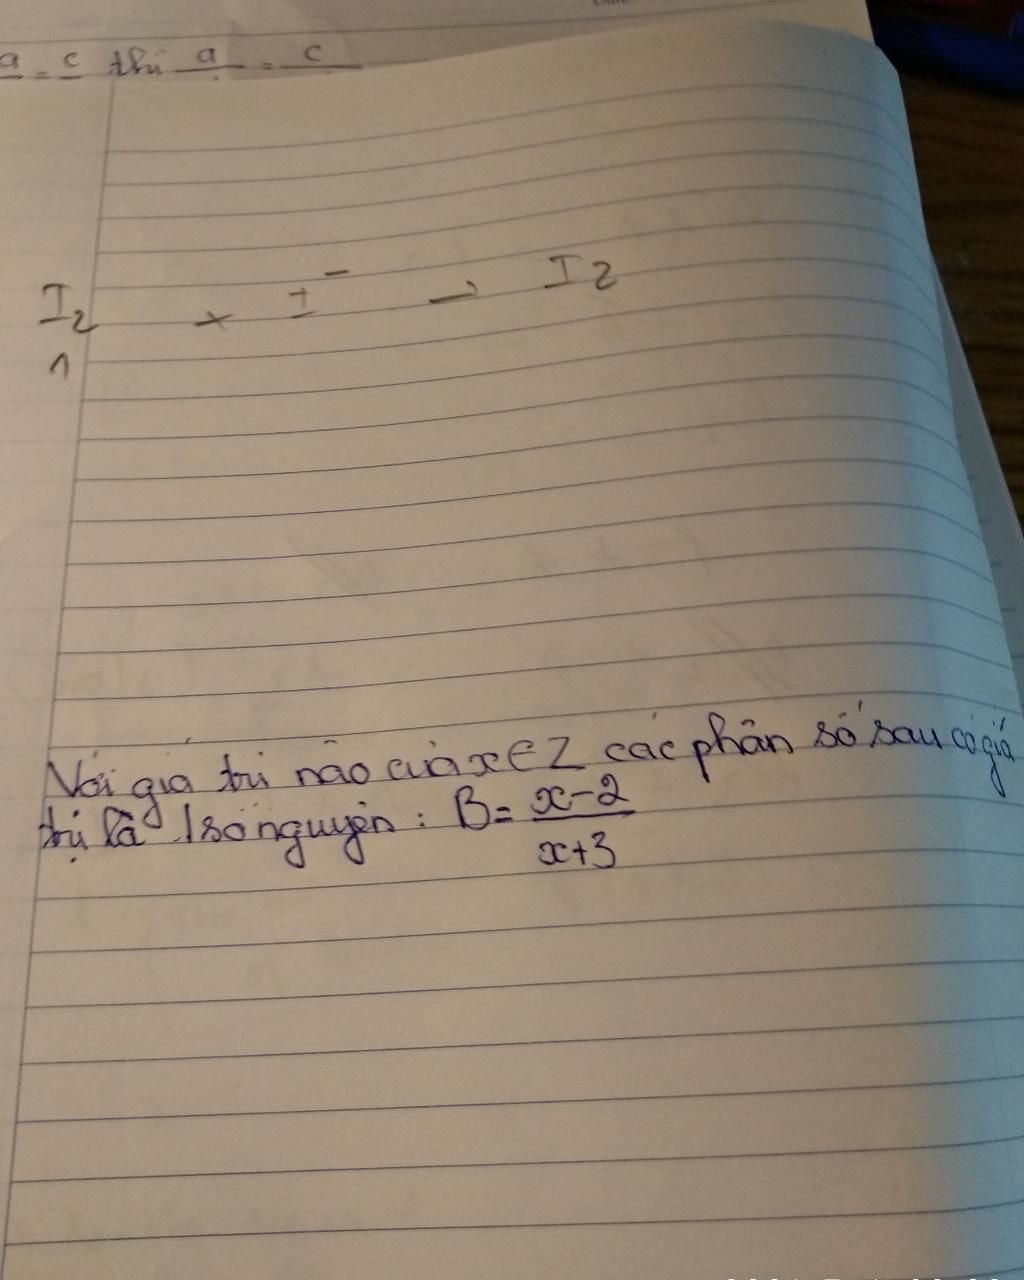 a = c thì a = c
I2 + I⁻ → I2
1
Với giá trị nào của x ∈ Z các phân số sau có giá
trị là 1 số nguyên : B = x-2
x+3